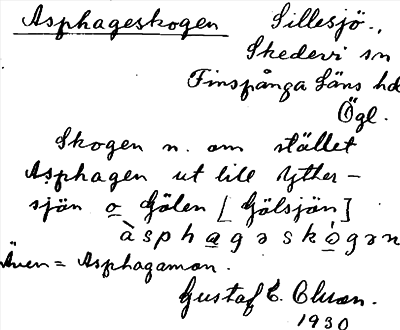 Asphageskogen Sillesjö.,
Skedevi sn
Finspånga Läns hd
Ögl.
Skogen n. om stället
Asphagen ut till Ytter-
sjön o Gölen [Gölsjön]
àsphagəskógən
Även = Asphagamon.
Gustaf E. Olsson.
1930